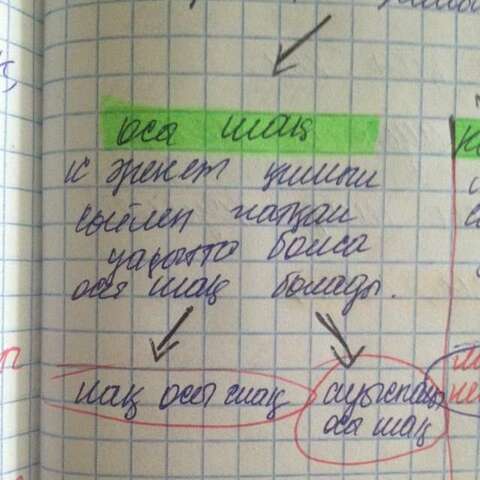 осы шақ
іс әрекет қимыл
сөйлеп жатқан
уақытта болса
осы шақ болады.
нақ осы шақ
ауыспалы
осы шақ